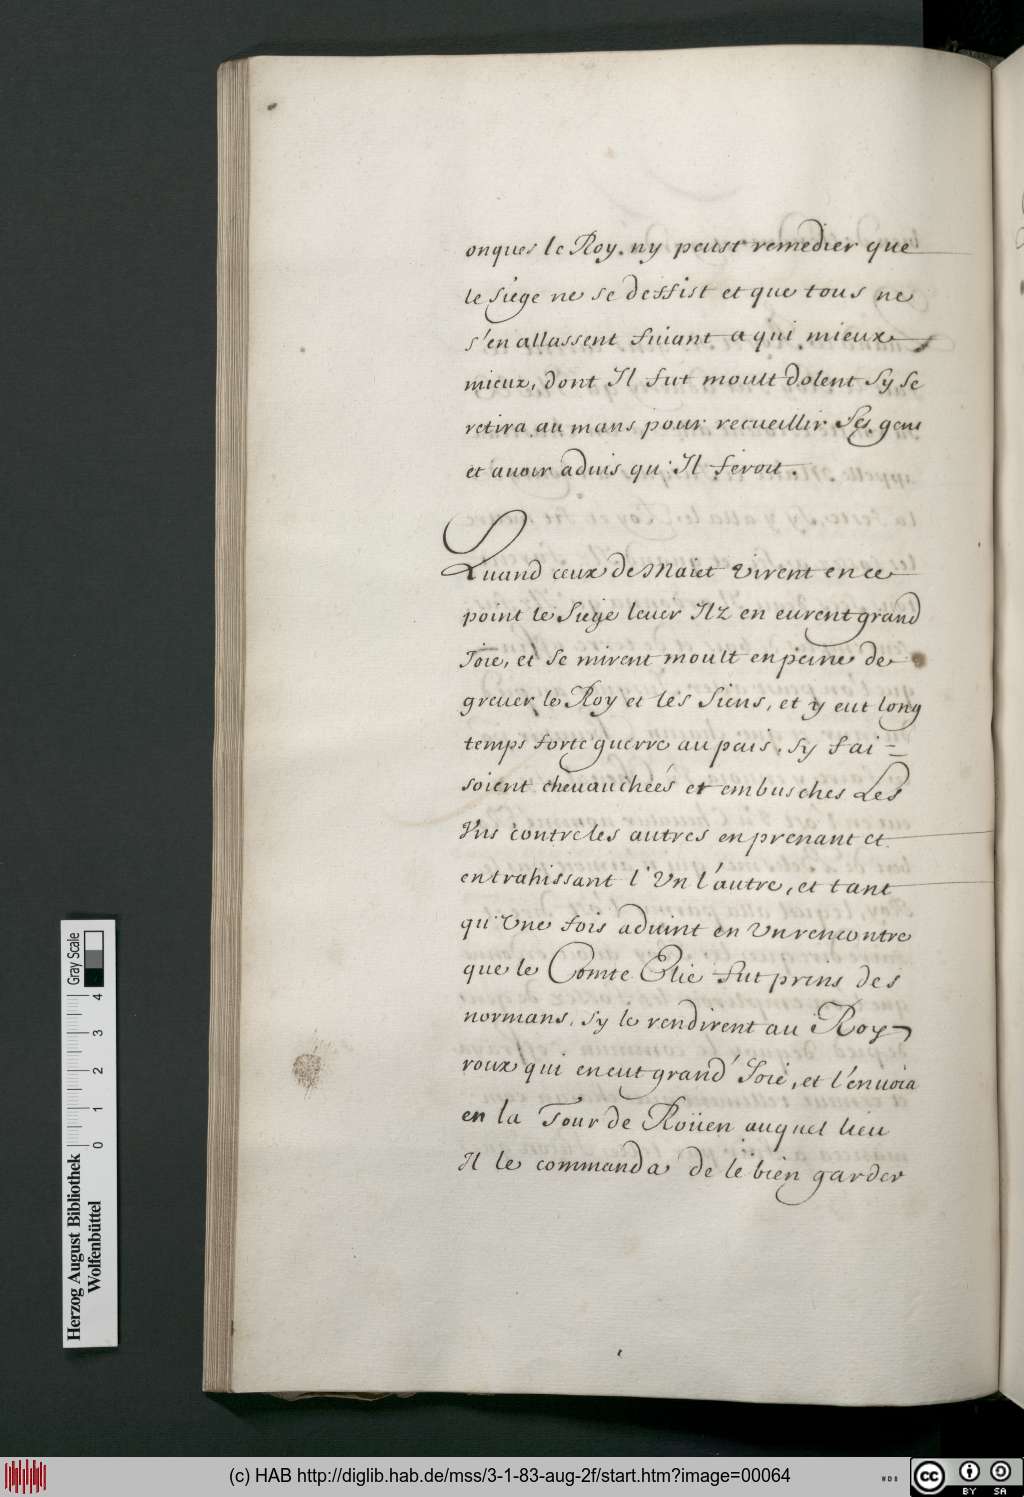 onques le Roy. ny peust remedier que
le siege ne se deffist et que tous ne
s'en allassent fuiant a qui mieux
mieux, dont Il fut moult dolent sy se
retira au mans pour recueillir ses gens
et auoir aduis qu'Il feroit.
Quand ceux de Maiet virent en ce
point le siege leuer Ilz en eurent grand
Joie, et se mirent moult en peine de
greuer le Roy et les siens, et y eut long
temps forte guerre au pais. sy fai=
soient cheuauchéés et embusches Les
Vns contre les autres en prenant et
entrahissant l'Vn l'autre, et tant
qu'Vne fois aduint en Vn rencontre
que le Comte Elie fut prins des
normans, sy le rendirent au Roy
roux qui en eut grand' Joie, et l'enuoia
en la Tour de Roüen auquel lieu
Il le commanda de le bien garder
Herzog August Bibliothek
Wolfenbüttel
0 1 2 3 4
Gray Scale
(c) HAB http://diglib.hab.de/mss/3-1-83-aug-2f/start.htm?image=00064
WDB
cc
BY SA